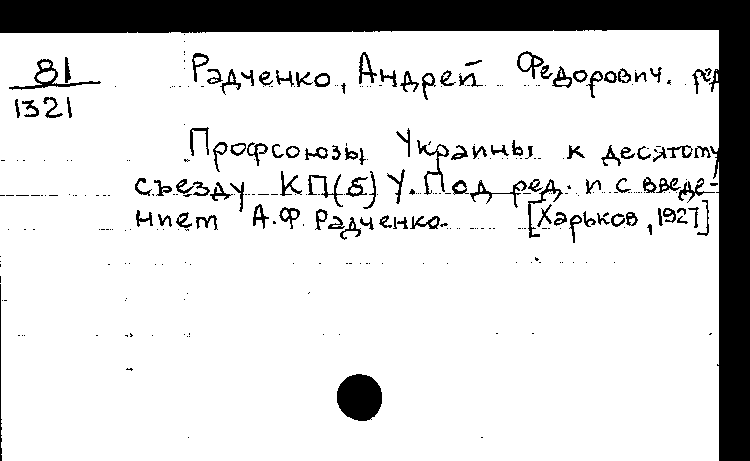 81
1321
Радченко, Андрей Федорович. ред
Профсоюзы Украины к десятому
съезду КП(б)У. Под ред. и с введе-
нием А.Ф. Радченко. [Харьков, 1927]